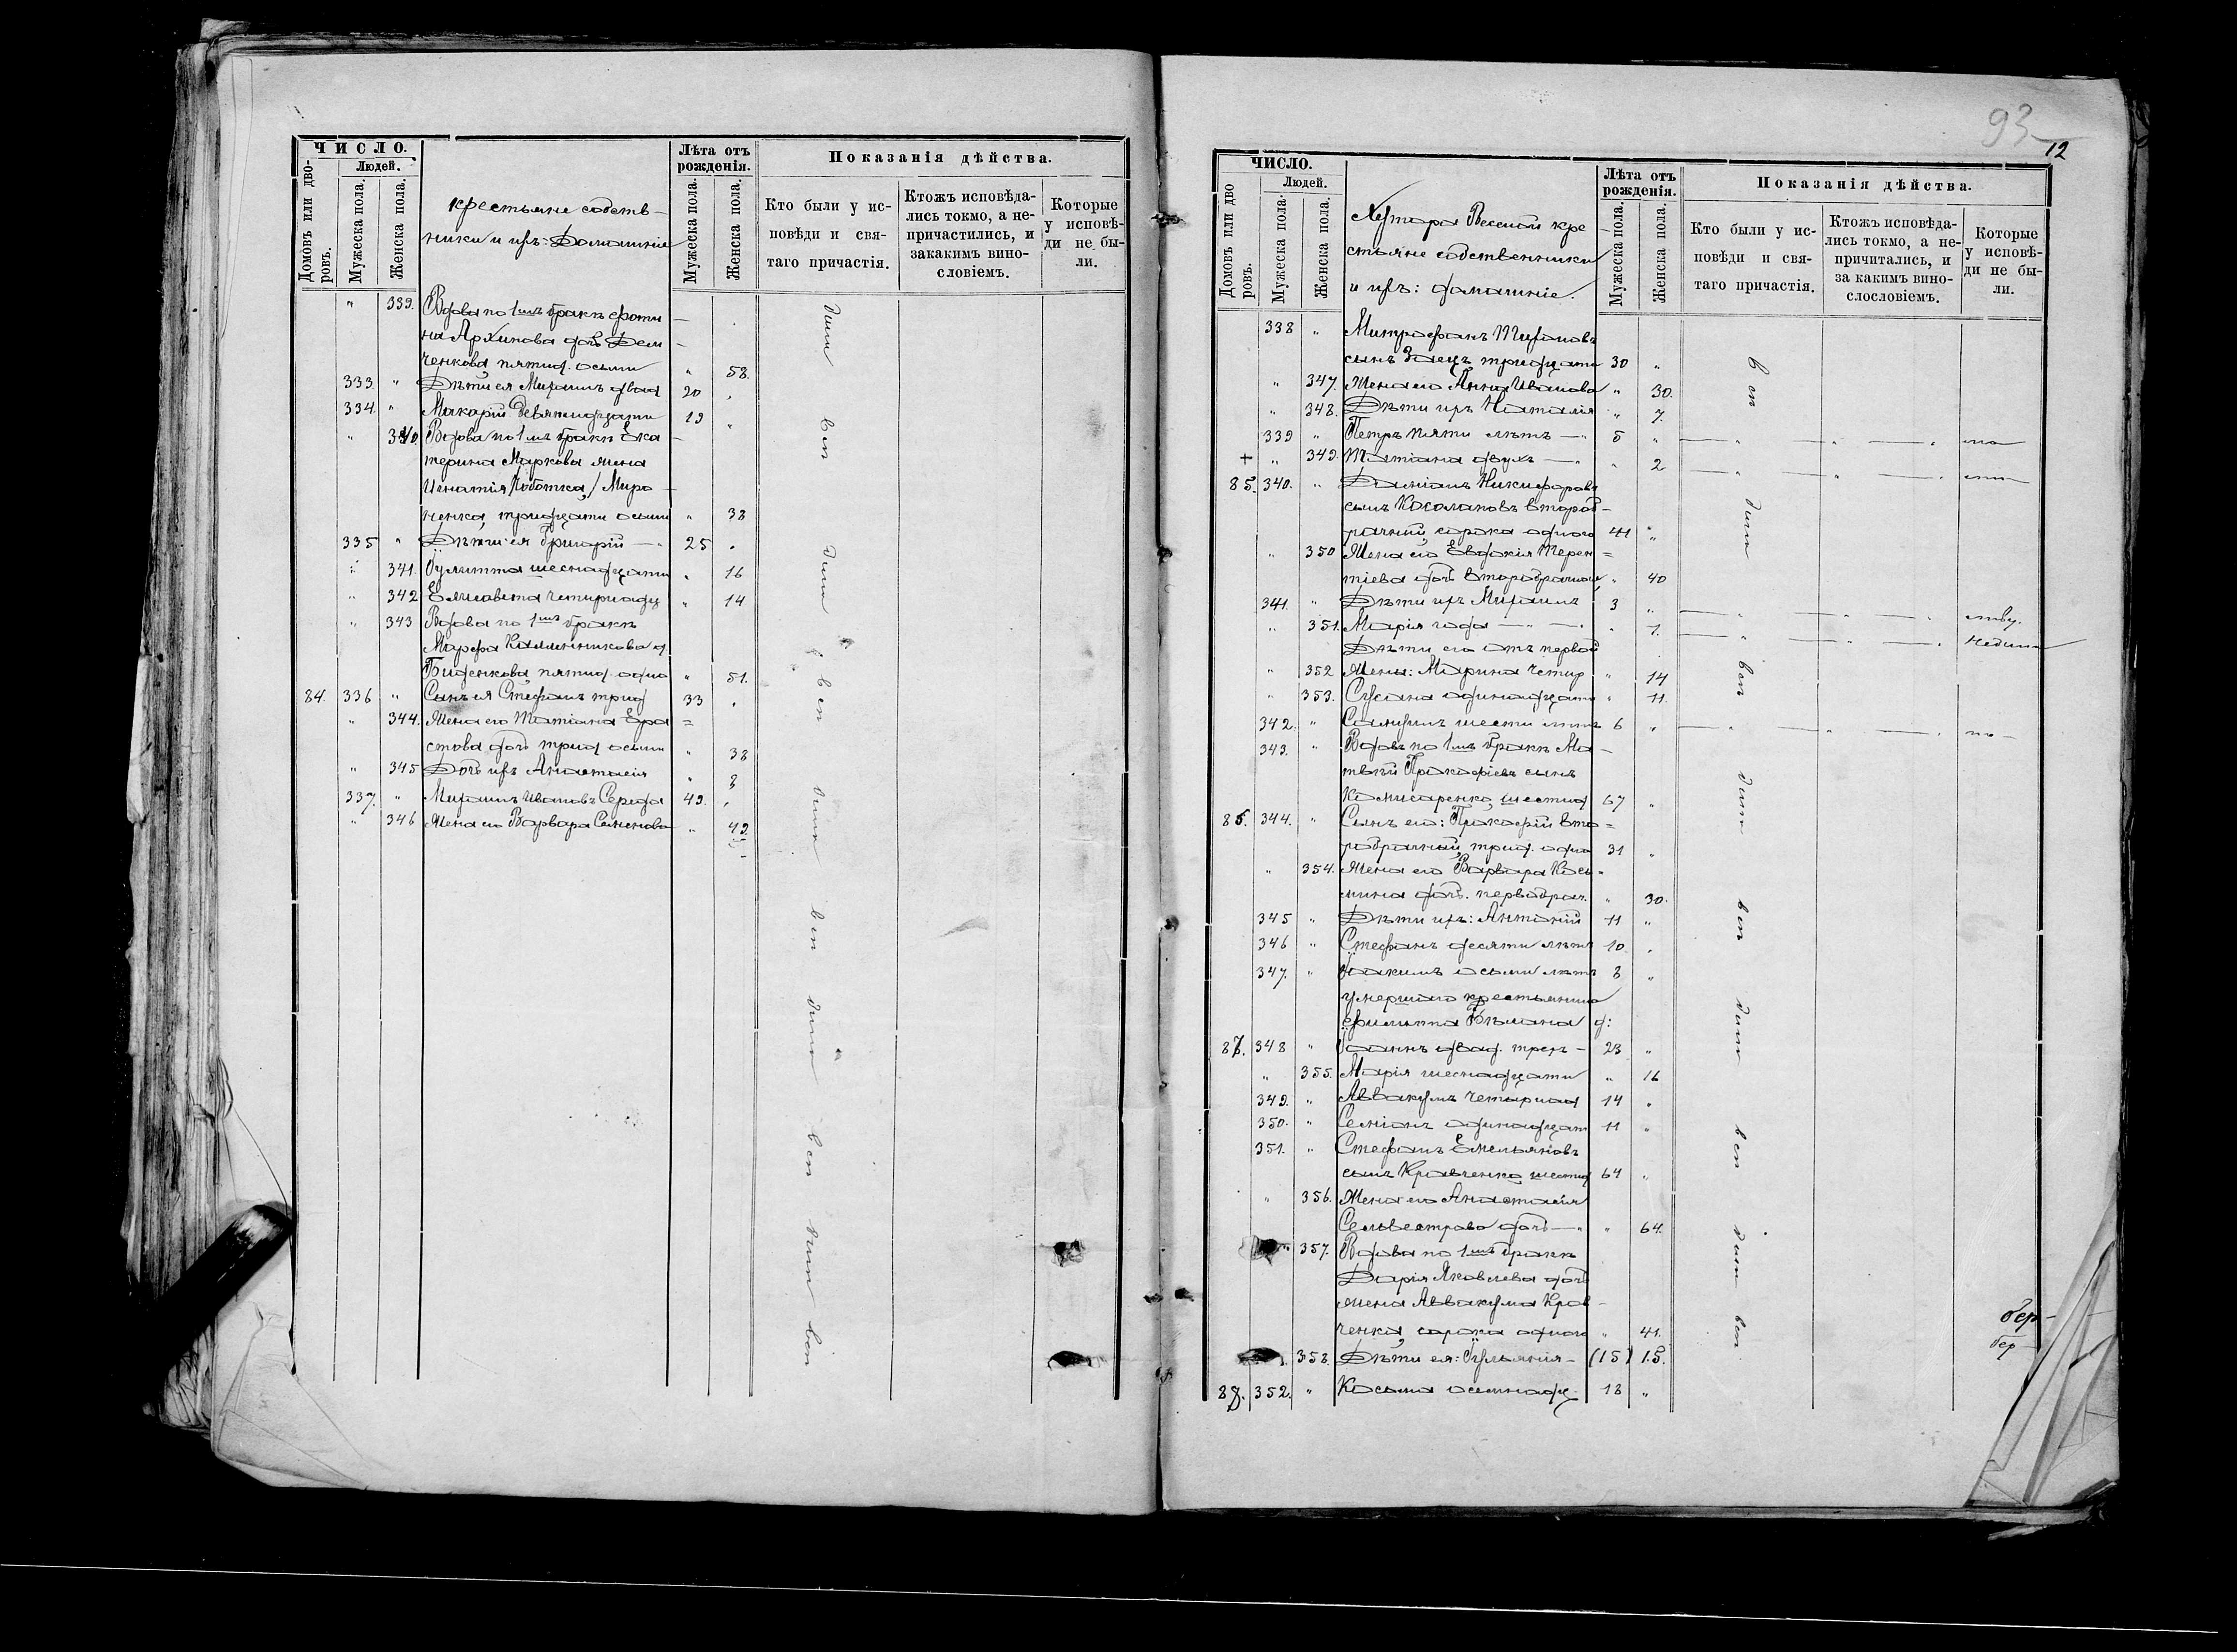 ЧИСЛО.
Людей.
Домовъ или дво-
ровъ.
Мужеска пола.
Женска пола.
крестьяне собств-
ники и ихъ: Домашніе
Лѣта отъ
рожденія.
Мужеска пола.
Женска пола.
Показанія дѣйства.
Кто были у ис-
повѣди и свя-
таго причастія.
Ктожъ исповѣда-
лись токмо, а не-
причастились, и
закакимъ вино-
словіемъ.
Которые
у исповѣ-
ди не бы-
ли.
" 339. Вдова по 1мъ бракѣ
на Архипова дочь Дем
ченкова пятид. осьми " 58.
333. " Дѣти ея Михаилъ двад 20 "
334. " Макарій девятнадцати 19 "
" 340. Вдова по 1мъ бракѣ Ека
терина Маркова жена
Игнатія Миро
ненка, тридцати осьми " 38
335 " Дѣти ея Григорій — " 25 "
" 341. Іулитта шеснадцати " 16
" 342 Елисавета четырнадц " 14
" 343 Вдова по 1мъ бракѣ
Марфа д
пятид. одно " 51.
84. 336 " Сынъ ея Стефанъ трид 33 "
" 344. Жена его Татіана Ера =
стова дочь трид осьми " 38
" 345 Дочь ихъ Анастасія " 8
337. " Михаилъ Ивановъ Середа 49. "
" 346 Жена его Варвара Семенова " 49.
93
12
ЧИСЛО.
Людей.
Домовъ или дво
ровъ.
Мужеска пола.
Женска пола.
Хутора Веселой кре
стьяне собственники
и ихъ: домашніе.
Лѣта отъ
рожденія.
Мужеска пола.
Женска пола.
Показанія дѣйства.
Кто были у ис-
повѣди и свя-
таго причастія.
Ктожъ исповѣда-
лись токмо, а не-
причитались, и
за какимъ вино-
слословіемъ.
Которые
у исповѣ-
ди не бы-
ли.
338 " Митрофанъ Тихоновъ
сынъ Заецъ тридцати 30 "
" 347. Жена его Анна Иванова " 30.
" 348. Дѣти ихъ Наталія " 7.
339 " Петръ пяти лѣтъ — " 5 "
+ " 349. Татіана двухъ — " " 2
85. 340. " Даніилъ Никифоровъ
сынъ Косолаповъ второб-
рачный, сорока одного 41 "
" 350 Жена его Евдокія Терен =
тіева дочь второбрачная " 40
341. " Дѣти ихъ Михаилъ 3 "
" 351. Марія года — " — " 1.
Дѣти его отъ первой
" 352 Жены: Марина четыр " 14
" 353. Сусана одинадцати " 11.
342. " Самуилъ шести лѣтъ 6 "
343. " Вдовъ по 1мъ бракѣ Ма-
твѣй Прокофіевъ сынъ
Комисаренко, шестид 67 "
86. 344. " Сынъ его: Прокофій вто =
робрачный, трид. одно 31 "
" 354. Жена его Варвара Кось-
мина дочь. первобрач. " 30.
345 " Дѣти ихъ: Антоній 11 "
346 " Стефанъ десяти лѣтъ 10 "
347. " Іоакимъ осьми лѣтъ 8 "
умершаго крестьянина
д:
87. 348 " Іоаннъ двад. трехъ - 23 "
" 355. Марія шеснадцати " 16
349. " Аввакумъ четырнад 14 "
350. " Семіонъ одинадцат 11 "
351. " Стефанъ Емельяновъ
сынъ Кравченко, шестид 64 "
" 356. Жена его Анастасія
Сельвестрова дочь — " " 64.
357. Вдова по 1мъ бракѣ
Дарія Яковлева дочь
жена Аввакума Крав-
ченка, сорока одного " 41.
бер-
358. Дѣти ея: Іульянія - (15) 15.
бер-
88. 352. " Косьма осьмнадц. 18 "